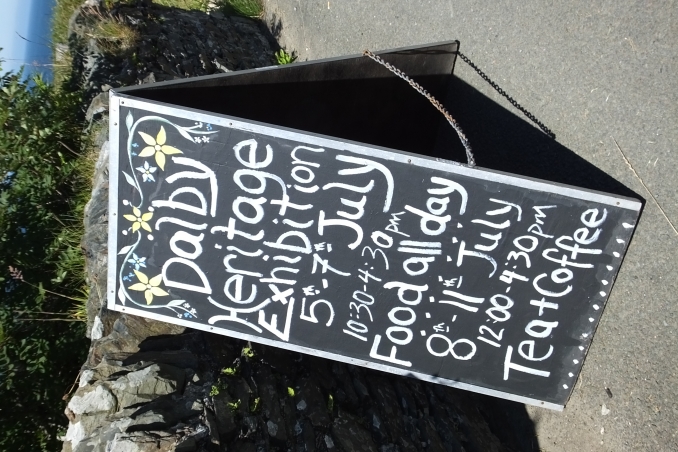 Dalby
Heritage
Exhibition
5th-7th July
10:30-4:30pm
Food all day
8th-11th July
12:00-4:30pm
Tea+Coffee